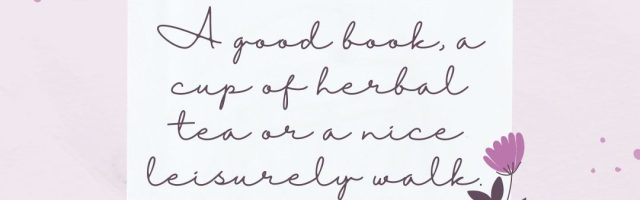 A good book, a
cup of herbal
tea or a nice
leisurely walk.